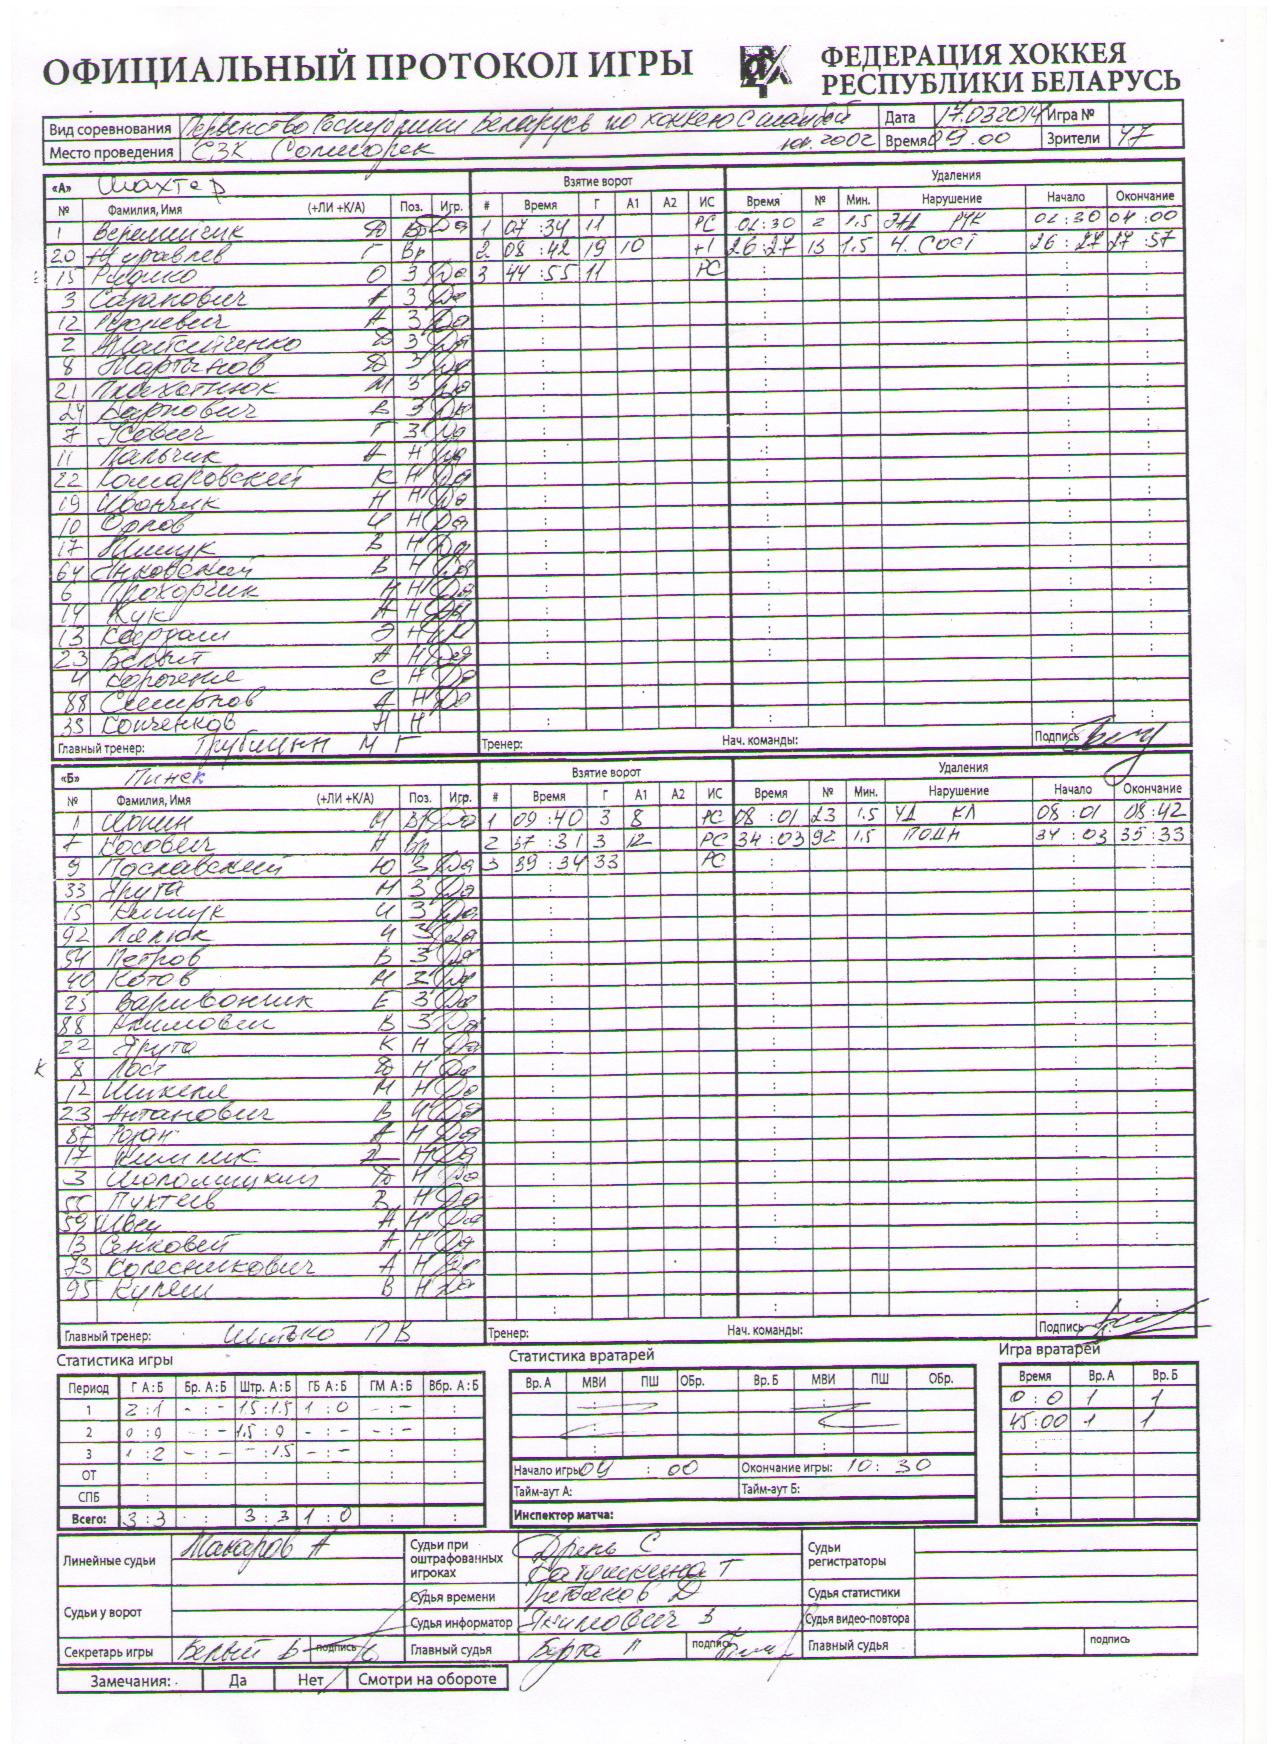 ОФИЦИАЛЬНЫЙ ПРОТОКОЛ ИГРЫ
ФЕДЕРАЦИЯ ХОККЕЯ
РЕСПУБЛИКИ БЕЛАРУСЬ
Вид соревнования Первенство Республики Беларусь по хоккею с шайбой Дата 17.032014 Игра №
Место проведения СЗК Солигорск юн. 2002 Время 09.00 Зрители 47
«А» Шахтер Взятие ворот Удаления
№ Фамилия, Имя (+ЛИ +К/А) Поз. Игр. # Время Г А1 А2 ИС Время № Мин. Нарушение Начало Окончание
1 Веремейчик Д Вр Да 1 07:34 11 РС 02:30 2 1.5 02:30 04:00
20 Журавлев Г Вр 2 08:42 19 10 +1 26:27 13 1.5 Ч. СОСТ 26:27 27:57
15 О З Да 3 44:55 11 РС
3 З Да
12 А З Да
2 Д З Да
8 Мартынов Д З Да
21 Плохотнюк М З Да
24 Карпович В З Да
7 Г З Да
11 Пальчик А Н Да
22 Комаровский К Н Да
19 Ивончик Н Н Да
10 Орлов И Н Да
17 В Н Да
64 Янковский В Н Да
6 Прохорчик Н Н Да
14 Кук А Н Да
13 Э Н Да
23 А Н Да
4 С Н Да
88 Смирнов А Н Да
33 Копченков Н Н
Главный тренер: Трубицын М Г Тренер: Нач. команды: Подпись
«Б» Пинск Взятие ворот Удаления
№ Фамилия, Имя (+ЛИ +К/А) Поз. Игр. # Время Г А1 А2 ИС Время № Мин. Нарушение Начало Окончание
1 Вр Да 1 09:40 3 8 РС 08:01 23 1.5 УД КЛ 08:01 08:42
7 Косович Н Вр 2 37:31 3 12 РС 34:03 92 1.5 ПОДН 34:03 35:33
9 Пославский Ю З Да 3 39:34 33 РС
33 Ярута М З Да
15 Климук И З Да
92 И З Да
54 Петров В З Да
40 Котов М З Да
25 Варивончик Е З Да
88 Акимовец В З Да
22 Ярута К Н Да
К 8 Н Да
12 Шикеля М Н Да
23 Антанович В Н Да
87 А Н Да
17 Н Да
3 Н Да
55 Пухтеев В Н Да
59 Швец А Н Да
13 Сенковец А Н Да
73 Колесникович А Н Да
95 Кулеш В Н Да
Главный тренер: П В Тренер: Нач. команды: Подпись
Статистика игры Статистика вратарей Игра вратарей
Период Г А:Б Бр. А:Б Штр. А:Б ГБ А:Б ГМ А:Б Вбр. А:Б Вр. А МВИ ПШ ОБр. Вр. Б МВИ ПШ ОБр. Время Вр. А Вр. Б
1 2:1 -:- 1.5:1.5 1:0 -:- : 0:0 1 1
2 0:0 -:- 1.5:0 -:- -:- : 45:00 1 1
3 1:2 -:- -:1.5 -:- :
ОТ
СПБ
Всего: 3:3 : 3:3 1:0 : :
Начало игры: 09:00 Окончание игры: 10:30
Тайм-аут А: Тайм-аут Б:
Инспектор матча:
Линейные судьи Макаров А
Судьи при оштрафованных игроках Дрень С
Батушкина Т
Судьи регистраторы
Судьи у ворот
Судья времени Д
Судья статистики
Судья информатор Якимович В
Судья видео-повтора
Секретарь игры Белый Б подпись Главный судья Бурта Л подпись Главный судья подпись
Замечания: Да Нет Смотри на обороте